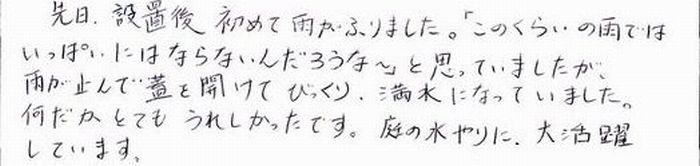 先日、設置後 初めて雨がふりました。「このくらいの雨では
いっぱいにはならないんだろうな〜」と思っていましたが、
雨が止んで蓋を開けてびっくり、満水になっていました。
何だかとてもうれしかったです。庭の水やりに、大活躍
しています。